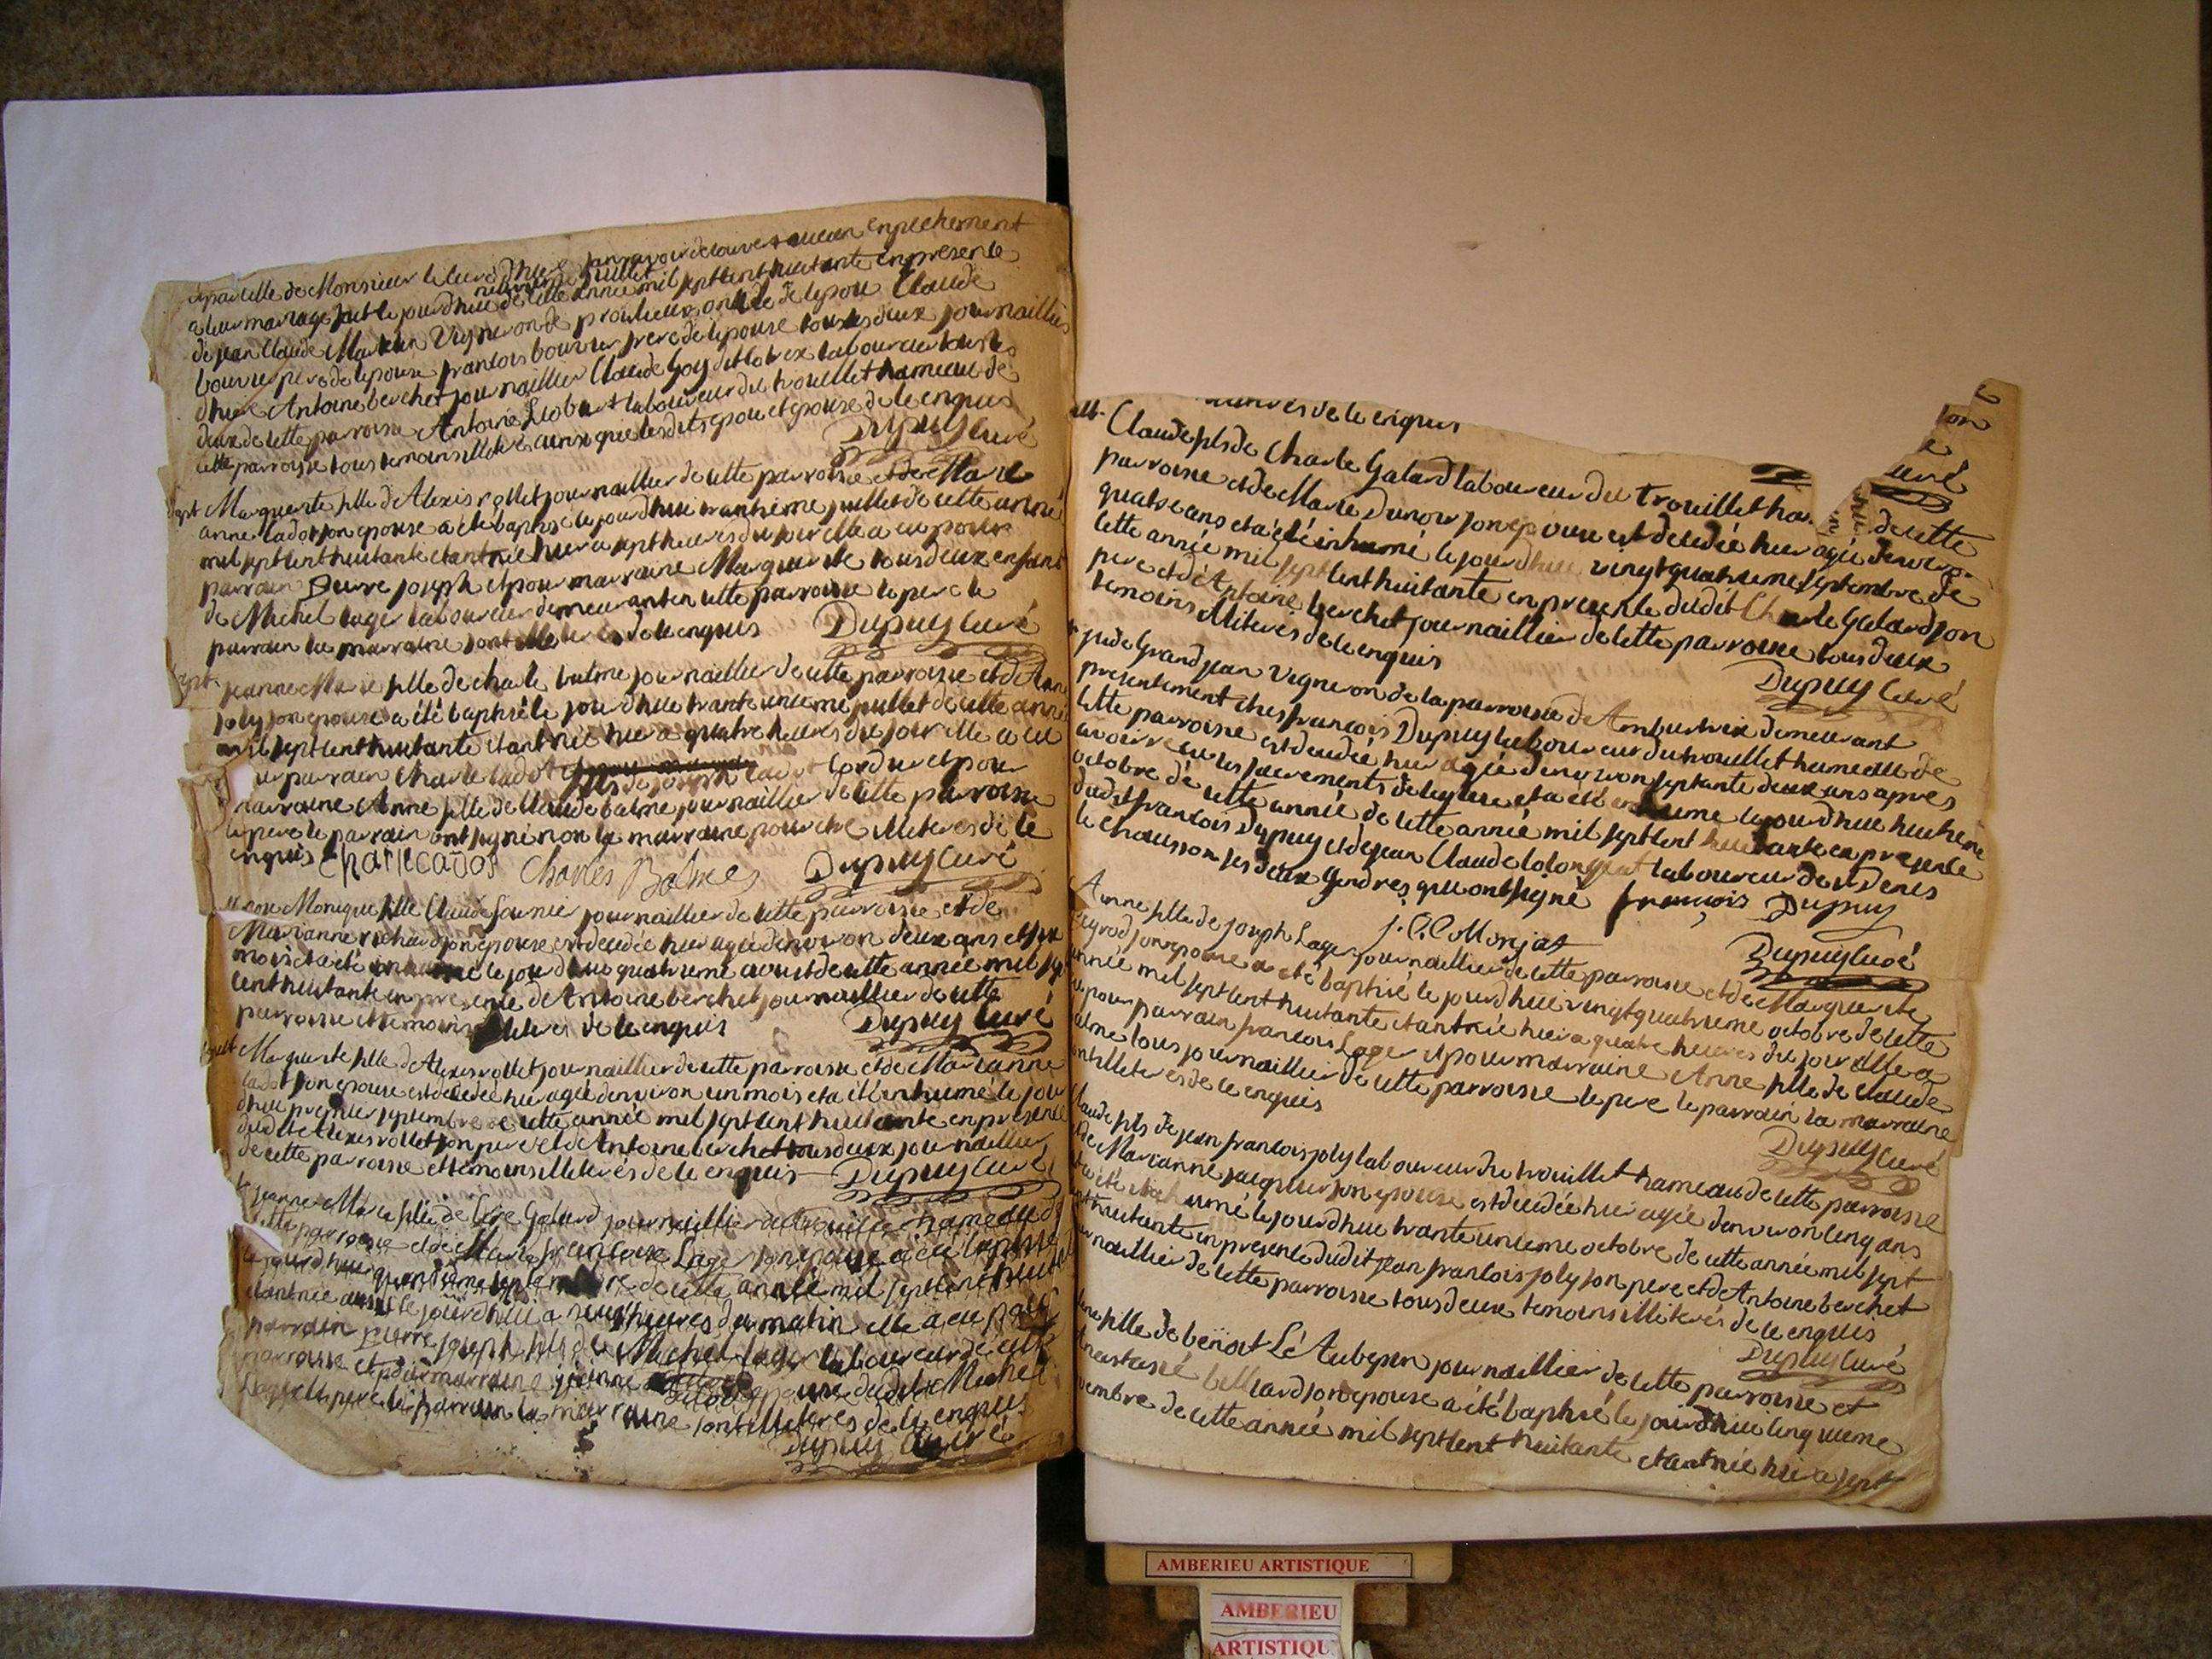 et par celle de Monsieur le curé d'hure sans avoir decouvert aucun enpechement
a leur mariage fait le jourdhui neuvieme juillet de cette année mil sept cent huitante en presence
de jean Claude Martin Vigneron de oncle de lepou Claude
bourrer pere de lepouse francois bourrer frere de lepouse tous les deux journailliers
dhure Antoine berchet journaillier Claude Goy laboureur tous les
deux de cette parroisse Antoine laboureur du trouillet hameau de
cette parroisse tous temoins illiterés ainsi que lesdits epou et epouse de ce enquis
Dupuy curé
bapt Marguerite fille d'Alexis rollet journaillier de cette parroisse et de Marie
anne cadot son epouse a été baptisé le jourdhui trantieme juillet de cette année
mil sept cent huitante etant née hier a sept heures du soir elle a eu pour
parrain Pierre joseph et pour marraine Marguerite tous deux enfans
de Michel lager laboureur demeurant en cette parroisse le pere le
parrain la marraine sont illiterés de ce enquis Dupuy curé
bapt jeanne Marie fille de charle balme journaillier de cette parroisse et de Anne
joly son epouse a été baptisé le jourdhui trante unieme juillet de cette année
mil sept cent huitante etant née hier a quatre heures du soir elle a eu
pour parrain Charle cadot fils de joseph cadot et pour
marraine Anne fille de claude balme journaillier de cette parroisse
le pere le parrain ont signé non la marraine pour etre illiterés de ce
enquis charle cados Charles Balmes Dupuy curé
Monique fille Claude fournier journaillier de cette parroisse et de
Marianne richard son epouse est decedée hier agée denviron deux ans et six
mois et a été inhumé le jourdhui quatrieme aoust de cette année mil sept
cent huitante en presence de Antoine berchet journaillier de cette
parroisse et temoins illiterés de ce enquis Dupuy curé
sepult Marguerite fille de Alexis rollet journaillier de cette parroisse et de Marianne
cadot son epouse est decedée hier agée denviron un mois et a été inhumé le jour
dhui premier septembre de cette année mil sept cent huitante en presence
dudit Alexis rollet son pere et de Antoine berchet tous deux journaillier
de cette parroisse et temoins illiterés de ce enquis Dupuy curé
jeanne Marie fille de Galard journaillier du trouillet hameau de
cette parroisse et de Marie francoise Lager son epouse a été baptisé
le jourdhui septembre de cette année mil sept cent huitante
etant née aussi le jourdhui a neuf heures du matin elle a eu pour
parrain pierre joseph fils de Michel lager laboureur de cette
parroisse et pour marraine jeanne epouse dudit Michel
Lager le pere le parrain la marraine sont illiterés de ce enquis
Dupuy curé
de ce enquis
curé
Claude fils de Charle Galard laboureur du trouillet de cette
parroisse et de Marie Dunoir son epouse est decedée hier agée denviron
quatre ans et a été inhumé le jourdhui vingt quatrieme septembre de
cette année mil sept cent huitante en presence dudit Charle Galard son
pere et de Antoine berchet journaillier de cette parroisse tous deux
temoins illiterés de ce enquis
Dupuy Curé
jude Grand jean Vigneron de la parroisse de Ambutrix demeurant
presentement ches francois Dupuy laboureur du trouillet hameau de
cette parroisse est decedée hier agée denviron septante deux ans apres
avoir recu les sacrements de leglise et a été inhumé le jourdhui huitieme
octobre de cette année de cette année mil sept cent huitante en presence
dudit francois Dupuy et de jean Claude laboureur de st Denis
le Chausson ses deux gendres qui ont signé francois Dupuy
Dupuy Curé
Anne fille de joseph Lager journaillier de cette parroisse et de Marguerite
son epouse a été baptisé le jourdhui vingt quatrieme octobre de cette
année mil sept cent huitante etant née hier a quatre heures du soir elle a
eu pour parrain francois Lager et pour marraine Anne fille de Claude
balme tous journaillier de cette parroisse le pere le parrain la marraine
sont illiterés de ce enquis
Dupuy curé
Claude fils de jean francois joly laboureur du trouillet hameau de cette parroisse
et de Marianne jacquier son epouse est decedée hier agée denviron cinq ans
et a été inhumé le jourdhui trante unieme octobre de cette année mil sept
cent huitante en presence dudit jean francois joly son pere et de Antoine berchet
journaillier de cette parroisse tous deux temoins illiterés de ce enquis
Dupuy curé
fille de benoit L'Aubepin journaillier de cette parroisse et
anastasie belliard son epouse a été baptisé le jourdhui cinquieme
novembre de cette année mil sept cent huitante etant née hier a sept
AMBERIEU ARTISTIQUE
AMBERIEU
ARTISTIQU